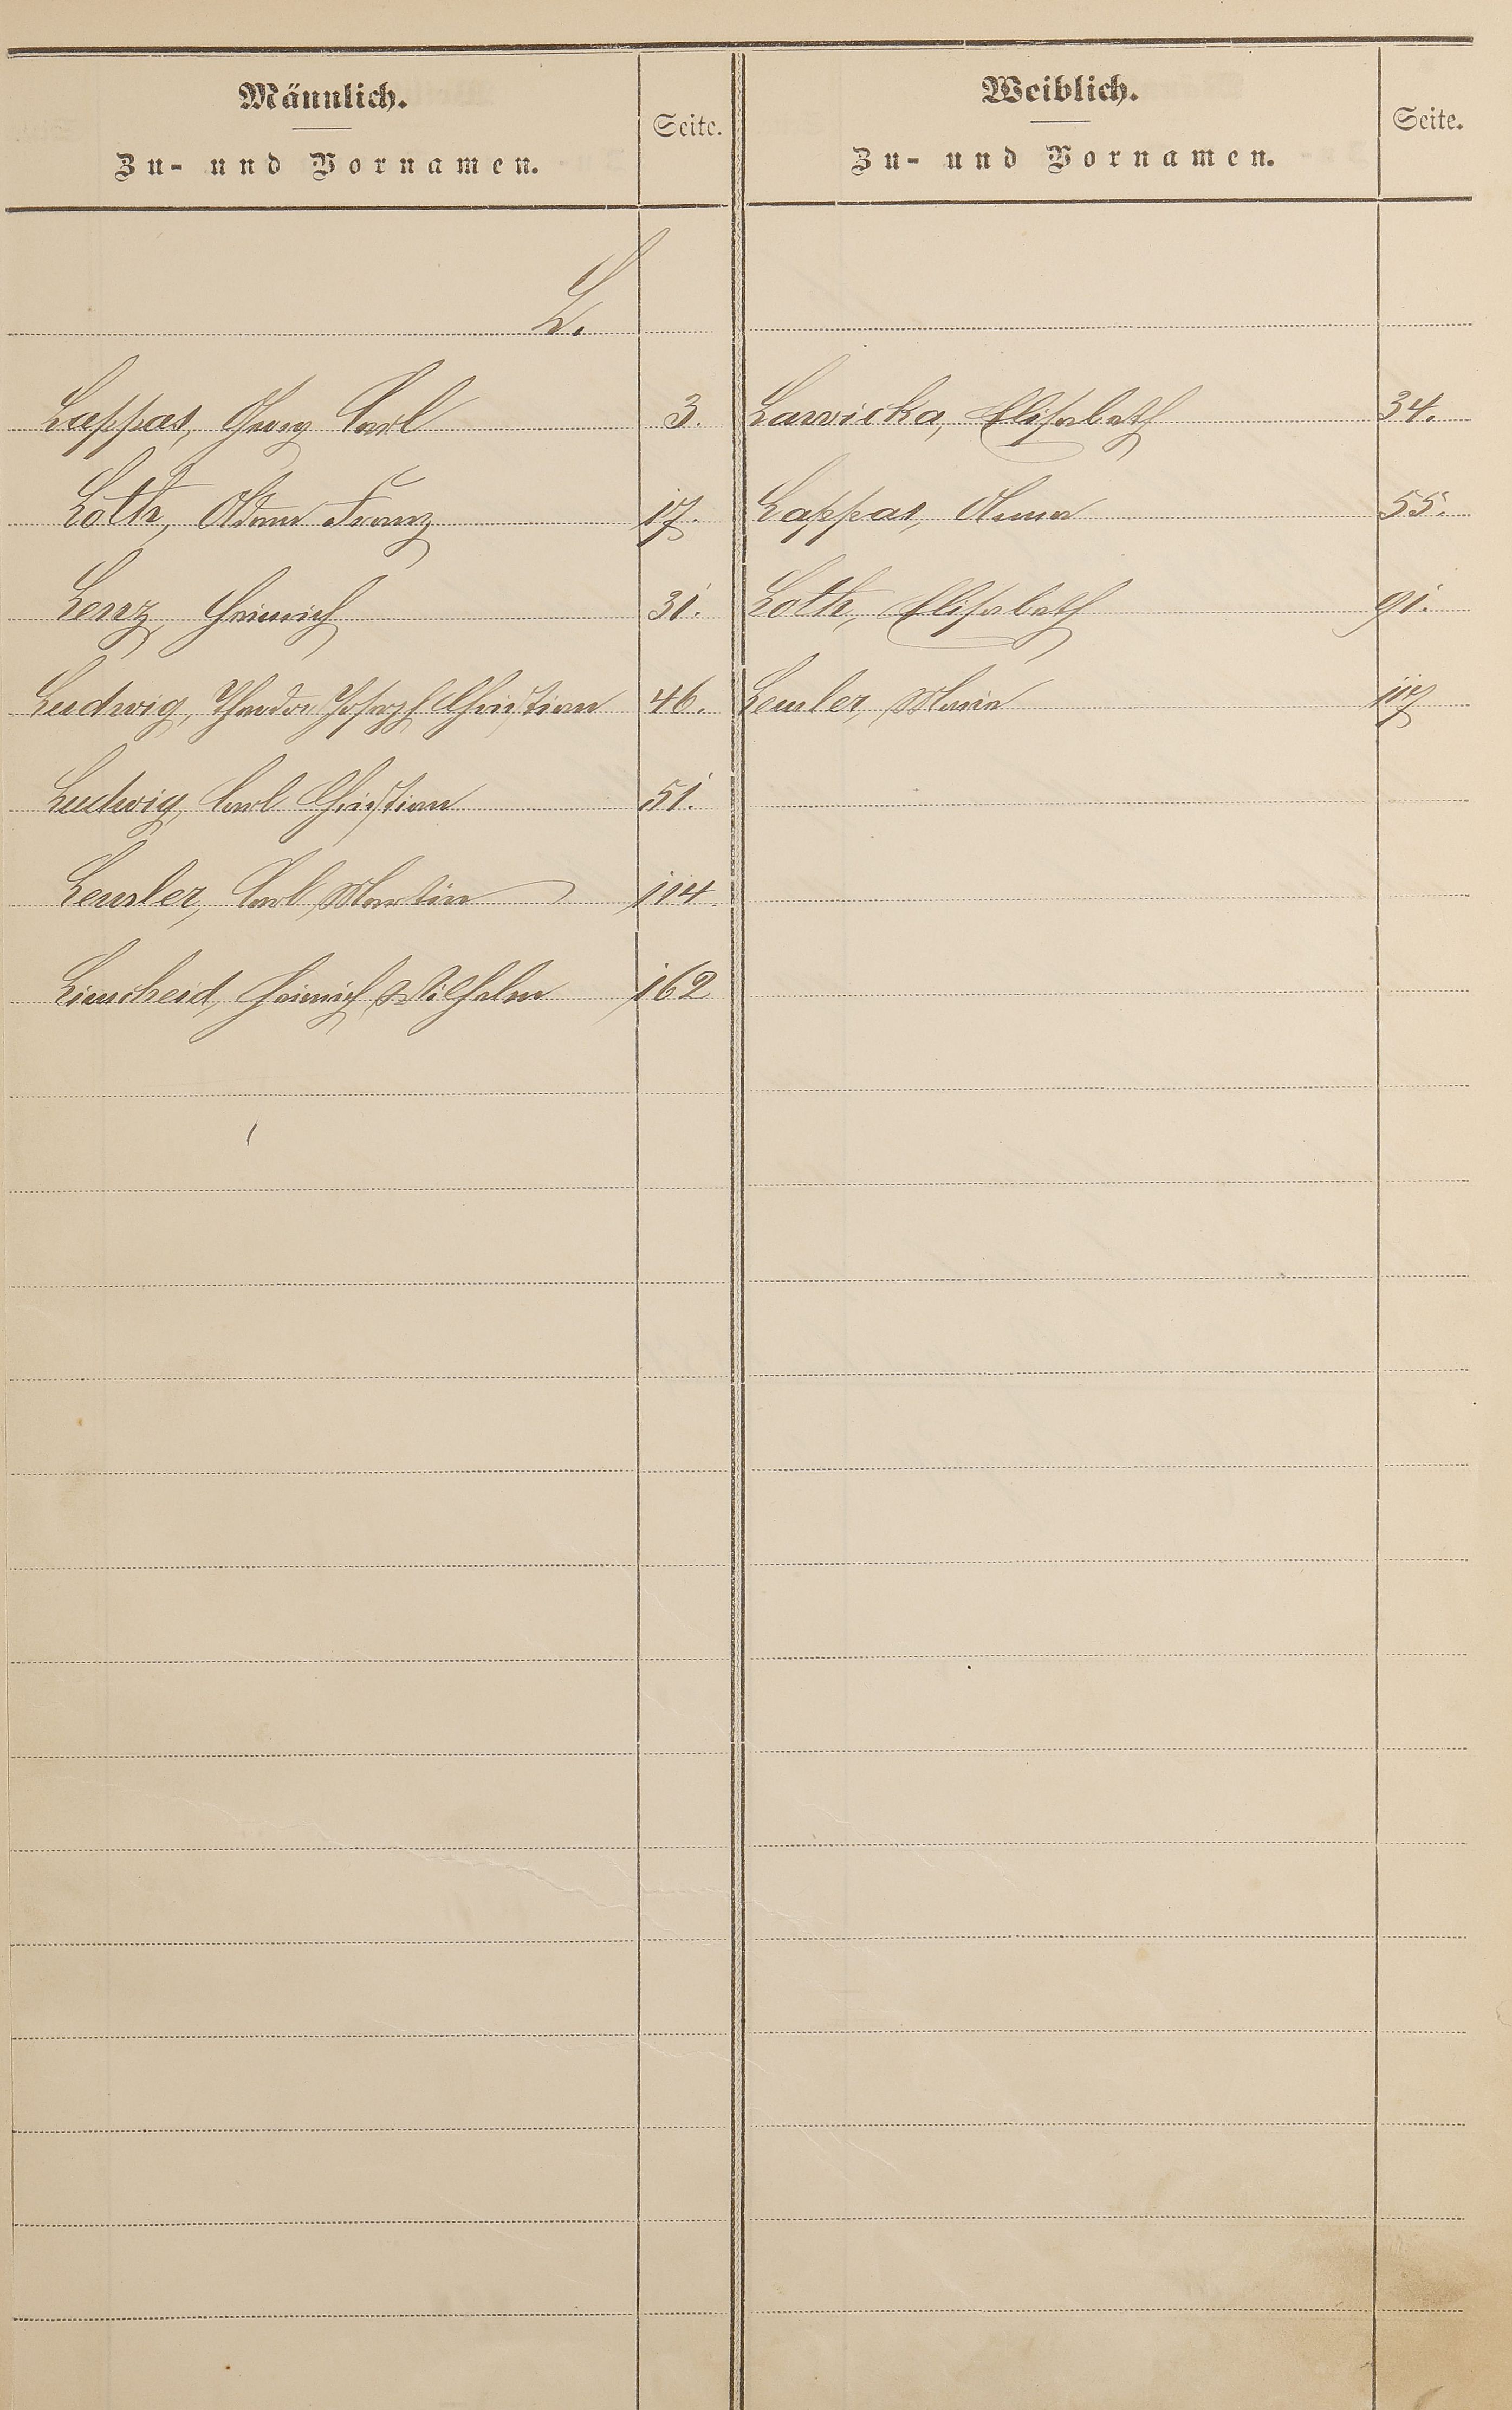 Männlich.
Zu- und Vornamen.
Seite.
Weiblich.
Zu- und Vornamen.
Seite.
L.
Lappas, Georg Carl 3. Lawicka, Elisabeth 34.
Loth, Adam Franz 17. Lappas, Anna 55.
Lenz, Heinrich 31. Loth, Elisabeth 91.
Ludwig, Theodor Joseph Christian 46. Leusler, Maria 117
Ludwig, Carl Christian 51.
Leusler, Carl Martin 114.
Linscheid, Heinrich Wilhelm 162